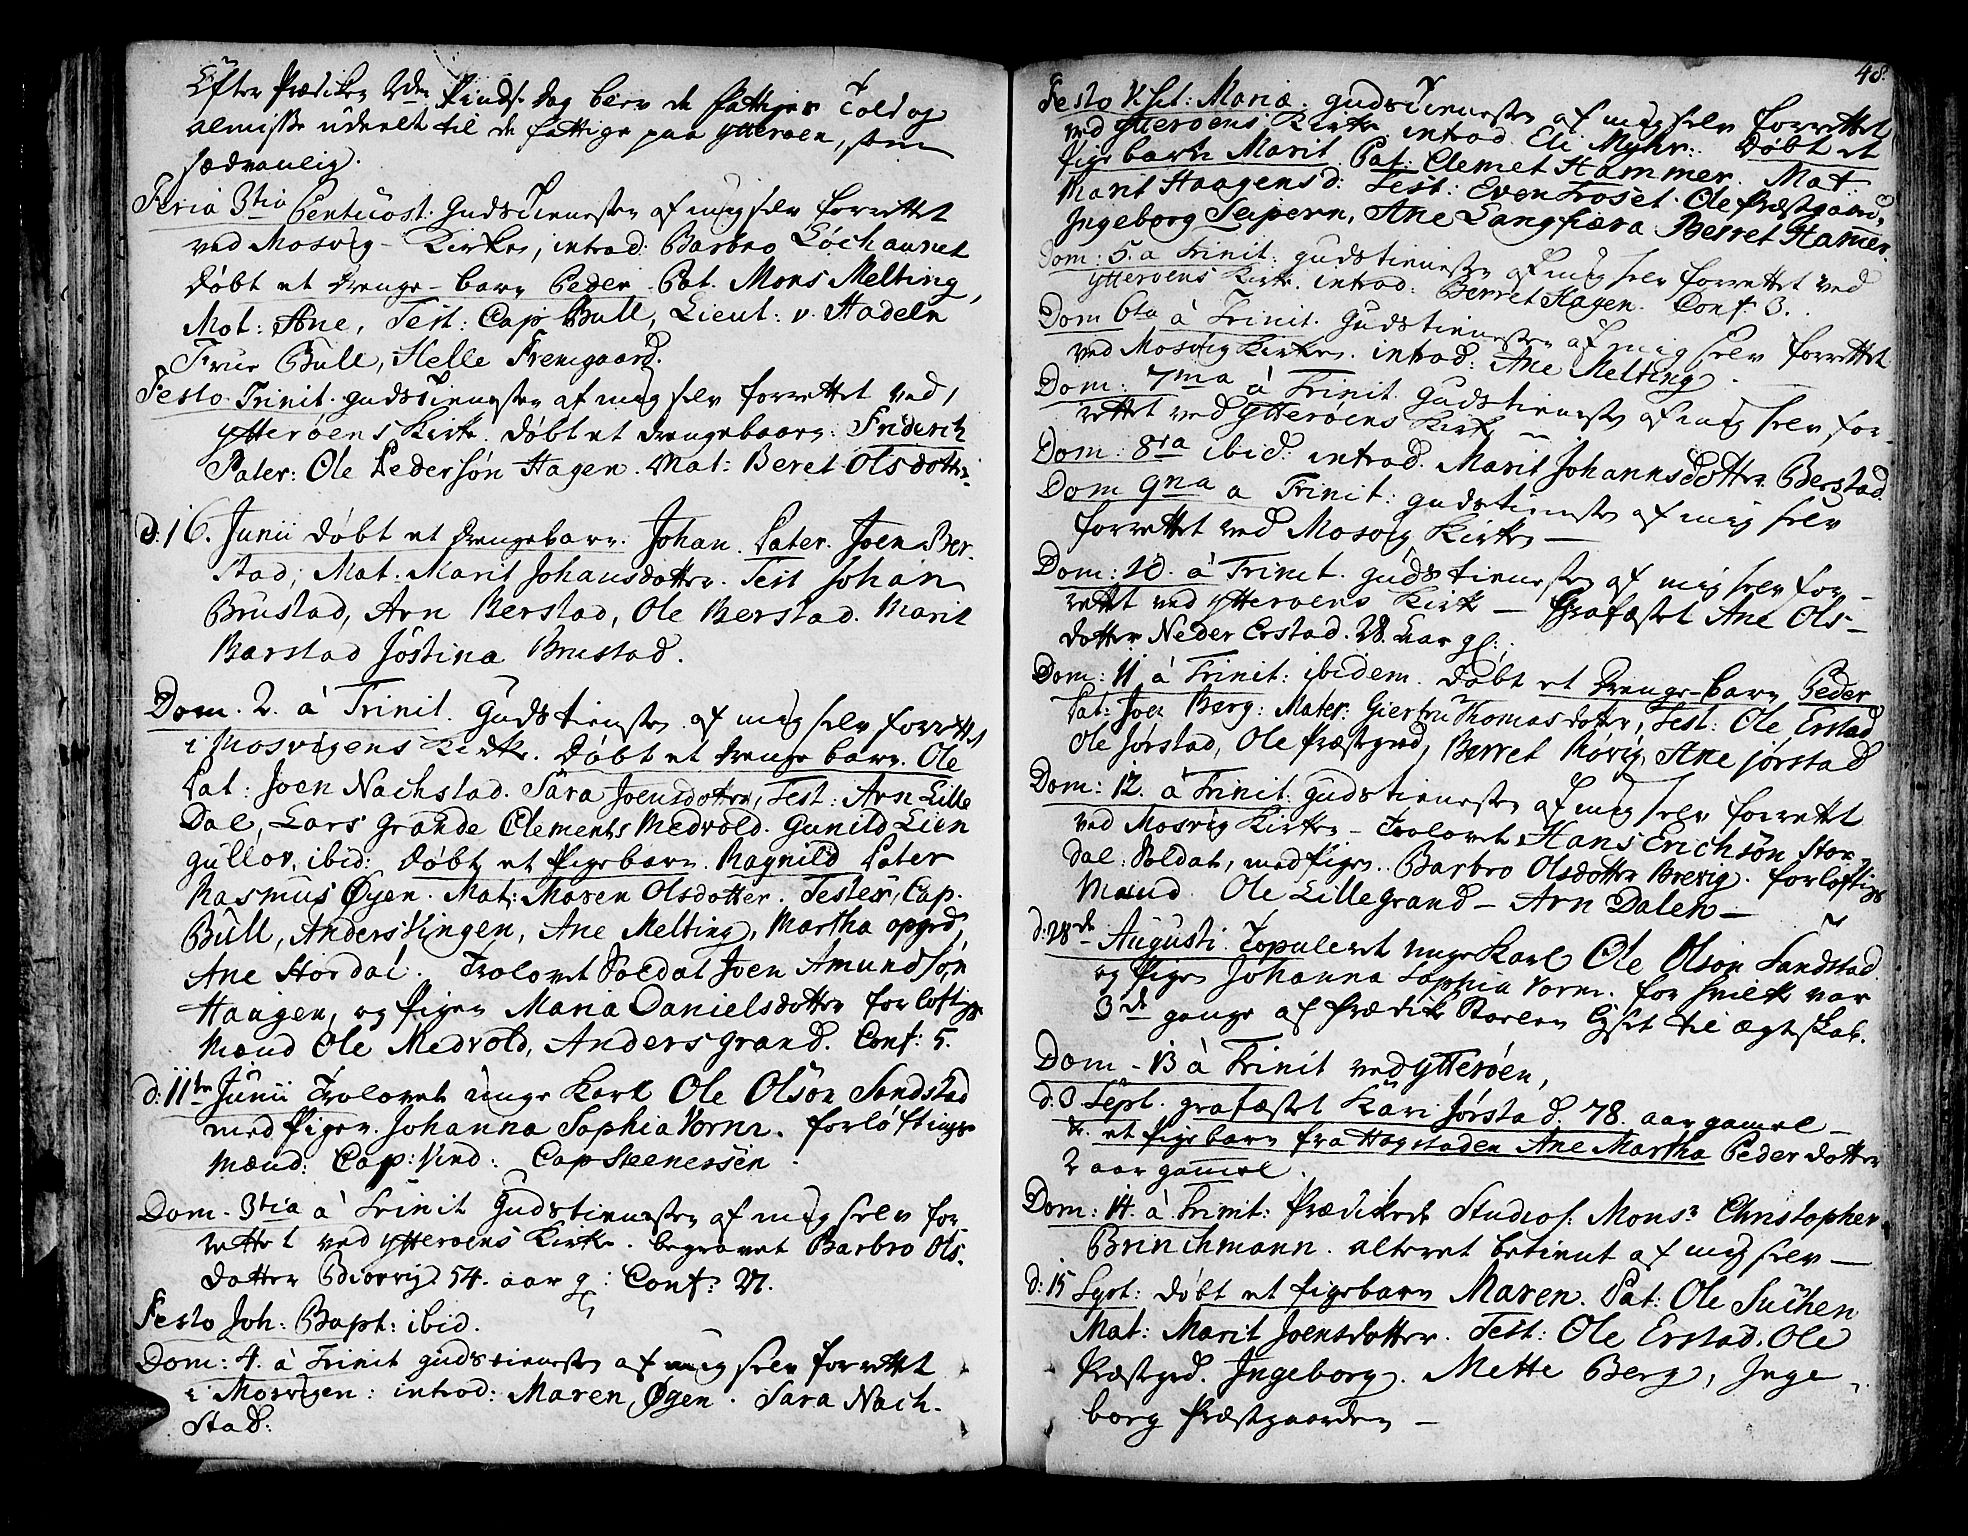 Efter Prædiken 2den Pinds. Dag blev de Fattiges Told og
almisse udeelt til de fattige paa Ytterøen, som
sædvanlig.
Feria 3tia Pentecost: Gudstienesten af mig selv forrettet
ved Mosvig-Kirke, introd: Barbro Løchaunet
døbt et drenge-barn Peder. Pat. Mons Melting,
Mat: Ane, Test: Cap Bull, Lieut: v. Hadeln
Frue Bull, Helle Fremgaard.
Festo Trinit. gudstienesten af mig selv forrettet ved
Ytterøens Kirke. døbt et drengebarn: Friderich
Pater: Ole Pedersøn Hagen. Mat: Beret Olsdotter
d: 16. Junii døbt et drengebarn. Johan. Pater. Joen Ber-
stad, Mat: Marit Johansdotter. Test Johan
Brustad, Arn Berstad, Ole Berstad. Marit
Barstad Jøstina Brustad.
Dom. 2. à Trinit. Gudstienesten af mig selv forrettet
i Mosvigens Kirke. døbt et drenge barn. Ole
Pat: Joen Nachstad. Sara Joensdotter, Test: Arn Lille
Dal, Lars Grande Clements Medvold. Gunild Lien
Gullov. ibid: døbt et Pigebarn. Ragnild Pater
Rasmus Øyen. Mat: Maren Olsdotter. Testes, Cap.
Bull, Anders Vingen, Ane Melting, Martha opgrd,
Ane Stordal. Trolovet Soldat Joen Amundsøn
Haugen, og Pigen Maria Danielsdotter forløftings
Mænd Ole Medvold, Anders grand. Conf: 5.
d: 11te Junii Trolovet unge Karl Ole Olsøn Sandstad
med Pigen Johanna Sophia Vorm. forløftings
Mænd: Cap: Vind: Cap Steenersen.
Dom. 3tia à Trinit Gudstienesten af mig selv for-
rettet ved Ytterøens Kirke. begravet Barbro Ols-
dotter Biørvig 54. aar g: Conf: 27.
Festo Joh: Bapt: ibid.
Dom: 4. à Trinit gudstienesten af mig selv forrettet
i Mosvigen: introd: Maren Øyen. Sara Nach-
stad:
48.
Festo Visit: Mariæ. gudstienesten af mig selv forrettet
ved Ytterøens Kirke. introd. Eli Myhr: Døbt et
Pige barn Marit. Pat: Clemet Hammer. Mat.
Marit Haagensd: Test: Even Troset. Ole Præstgaard,
Ingeborg Seipern, Ane Langfiæra Berret Hamer.
Dom: 5. a Trinit: gudstienesten af mig selv forrettet ved
Ytterøens Kirke. introd: Berret Hagen. Conf: 3.
Dom 6ta à Trinit. Gudstienesten af mig selv forrettet
ved Mosvig Kirke. introd: Ane Melting.
Dom: 7ma à Trinit. Gudstienesten af mig selv for-
rettet ved Ytterøens Kirke
Dom: 8va ibid: introd. Marit Johannsdotter Berstad.
Dom 9na a Trinit: gudstienesten af mig selv
forrettet ved Mosvig Kirke —
Dom: 10. à Trinit. gudstienesten af mig selv for-
rettet ved Ytterøens Kirke — Grafæstet Ane Ols-
dotter Neder Erstad. 28. Aar gl:
Dom: 11 à Trinit: ibidem. døbt et drenge-barn Peder
Pat: Joen Berg: Mater: Giertru Thomasdotter, Test: Ole Erstad
Ole Jørstad, Ole Præstgrd, Berret Rovig, Ane Jørstad
Dom: 12. à Trinit: gudstienesten af mig selv forrettet
ved Mosvig Kirke — Trolovet Hans Erichsøn Stor-
dal: Soldat, med Pigen. Barbro Olsdotter Brevig. forløftings
Mænd Ole Lillegrand — Arn Dalen —
d: 28de Augusti. Copuleret unge Karl Ole Olsøn Sandstad
og Pigen Johanna Sophia Vorm. for hvilk var
3de gange af Prædike Stoelen lyset til ægteskab.
Dom - 13 à Trinit ved Ytterøen,
d. 3 Sept. grafæstet Kari Jørstad. 78. aar gamel —
& et Pigebarn fra Hogstaden Ane Martha Peder dotter
2 aar gamel.
Dom: 14. à Trinit: Prædikede Studios: Monsr Christopher
Brinchmann. alteret betient af mig selv —
d: 15 Sept: døbt et Pigebarn Maren. Pat: Ole Suchen
Mat: Marit Joensdotter. Test: Ole Erstad. Ole
Præstgrd. Ingeborg. Mette Berg, Inge-
borg Præstgaarden —